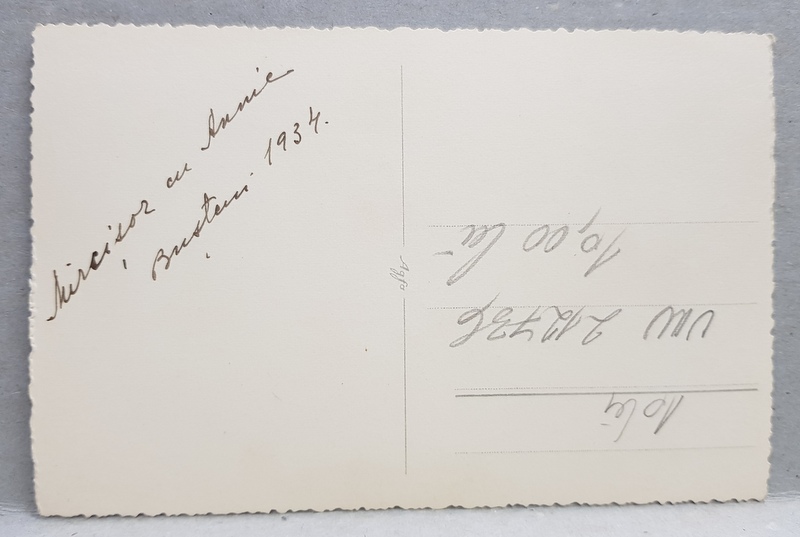 Mircișor cu Annie
Bușteni 1934.
Agfa
10 lei
VIII 212736
10,00 lei